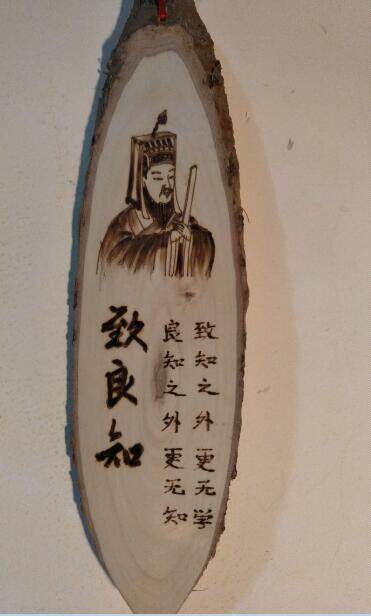 致良知
良知之外更无知
致知之外更无学